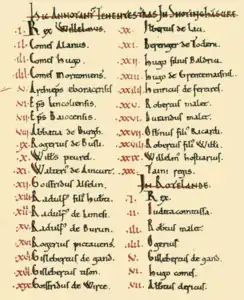 Hic Annotantur Tenentes t'ras In Snotinghascire.
.I. Rex Willelmus.
.II. Comes Alanus.
.III. Comes hugo.
.IIII. Comes moritoniensis.
.V. Archieps eboracensis
.VI. Eps Lincoliensis.
.VII. Eps Baiocensis.
.VIII. Abbatia de Burgh.
.IX. Rogerius de Busli.
.X. Wills peurel.
.XI. Walterus de Aincurt.
.XII. Goisfridus Alselin.
.XIII. Radulfus filius huberti.
.XIIII. Radulfus de Limesi.
.XV. Radulfus de Burun.
.XVI. Rogerius pictauensis.
.XVII. Gislebertus de gand.
.XVIII. Gislebertus tison.
.XIX. Goisfridus de Wirce.
.XX. Ilbertus de Laci.
.XXI. Berenger de Todeni.
.XXII. hugo filius Baldrici.
.XXIII. hugo de Grentemaisnil.
.XXIIII. henricus de ferrariis.
.XXV. Robertus malet.
.XXVI. Durandus malet.
.XXVII. Osbernus filius Ricardi.
.XXVIII. Robertus filius Willi.
.XXIX. Willelmus hostiarius.
.XXX. Taini regis.
In Roteland.
.I. Rex.
.II. Iudita comitissa.
.III. Robertus malet.
.IIII. Ogerius
.V. Gislebertus de gand.
.VI. hugo comes.
.VII. Albertus clericus.